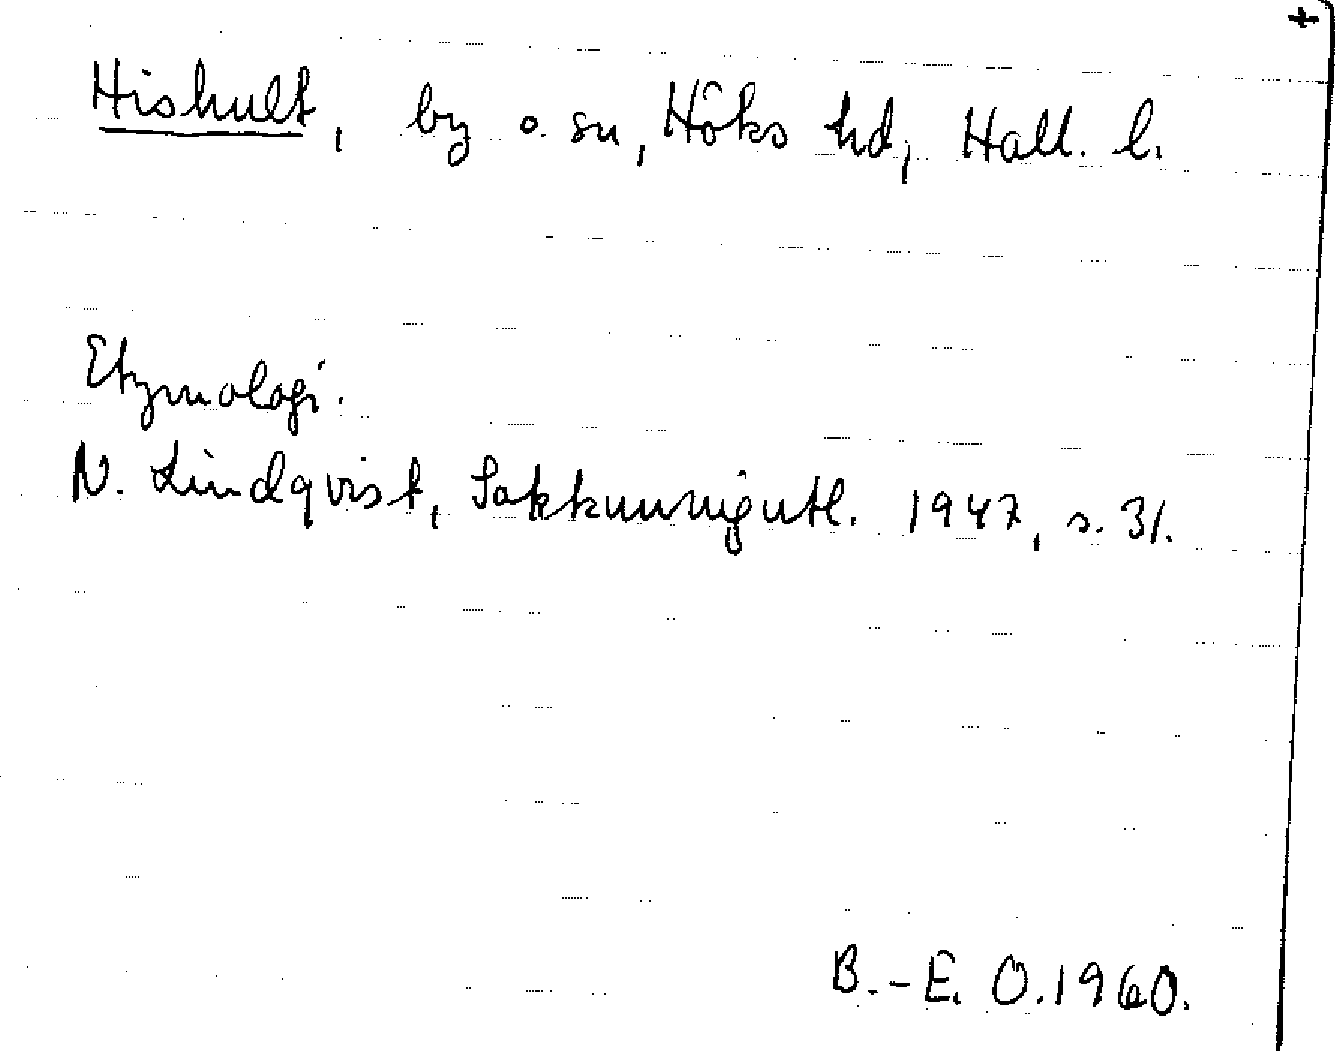 +
Hishult, by o. sn, Höks hd, Hall. l.
Etymologi.
N. Lindqvist, Sakkunnigutl. 1947, s. 31.
B.-E. O. 1960.